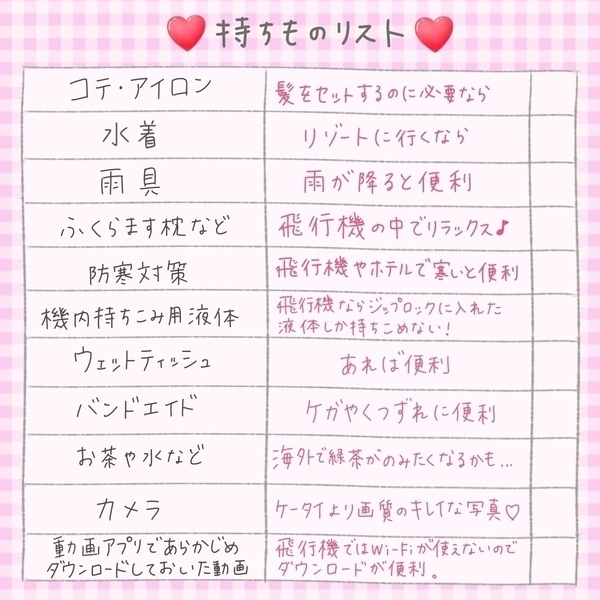 持ちものリスト
コテ・アイロン
髪をセットするのに必要なら
水着
リゾートに行くなら
雨具
雨が降ると便利
ふくらます枕など
飛行機の中でリラックス♪
防寒対策
飛行機やホテルで寒いと便利
機内持ちこみ用液体
飛行機ならジップロックに入れた
液体しか持ちこめない!
ウェットティッシュ
あれば便利
バンドエイド
ケガやくつずれに便利
お茶や水など
海外で緑茶がのみたくなるかも…
カメラ
ケータイより画質のキレイな写真♡
動画アプリであらかじめ
ダウンロードしておいた動画
飛行機ではWi-Fiが使えないので
ダウンロードが便利。